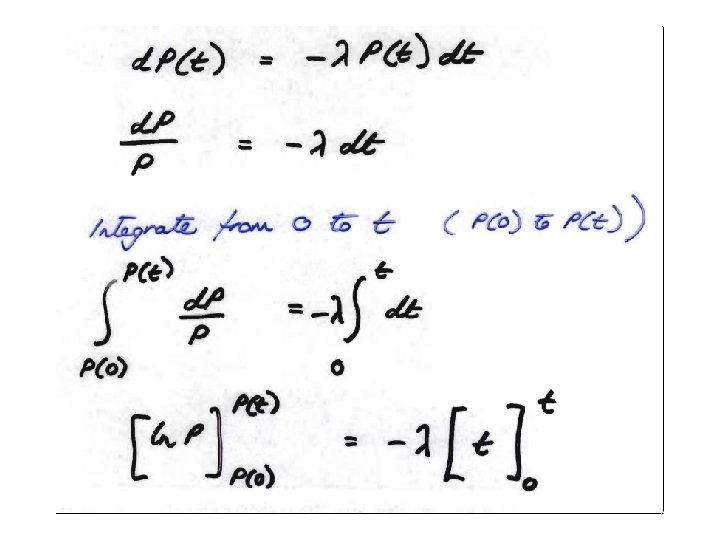 dP(t) = -λ P(t) dt
dP/P = -λ dt
Integrate from 0 to t (P(0) to P(t))
∫_{P(0)}^{P(t)} dP/P = -λ ∫_0^t dt
[ln P]_{P(0)}^{P(t)} = -λ [t]_0^t